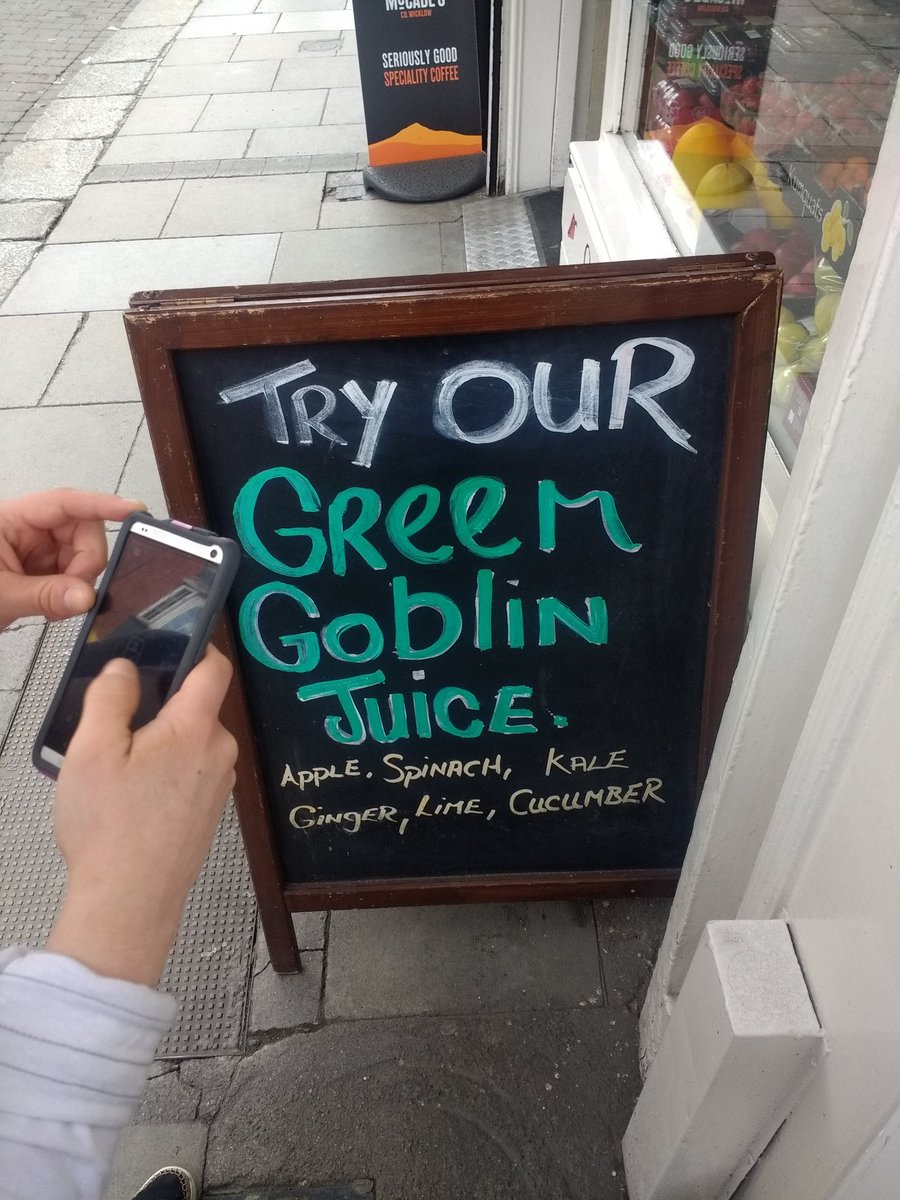 McCABE'S
CO. WICKLOW
SERIOUSLY GOOD
SPECIALITY COFFEE
Kumquats
TRY OUR
GReen
GoblIN
JUICE.
APPLE. SPINACH, KALE
GINGER, LIME, CUCUMBER